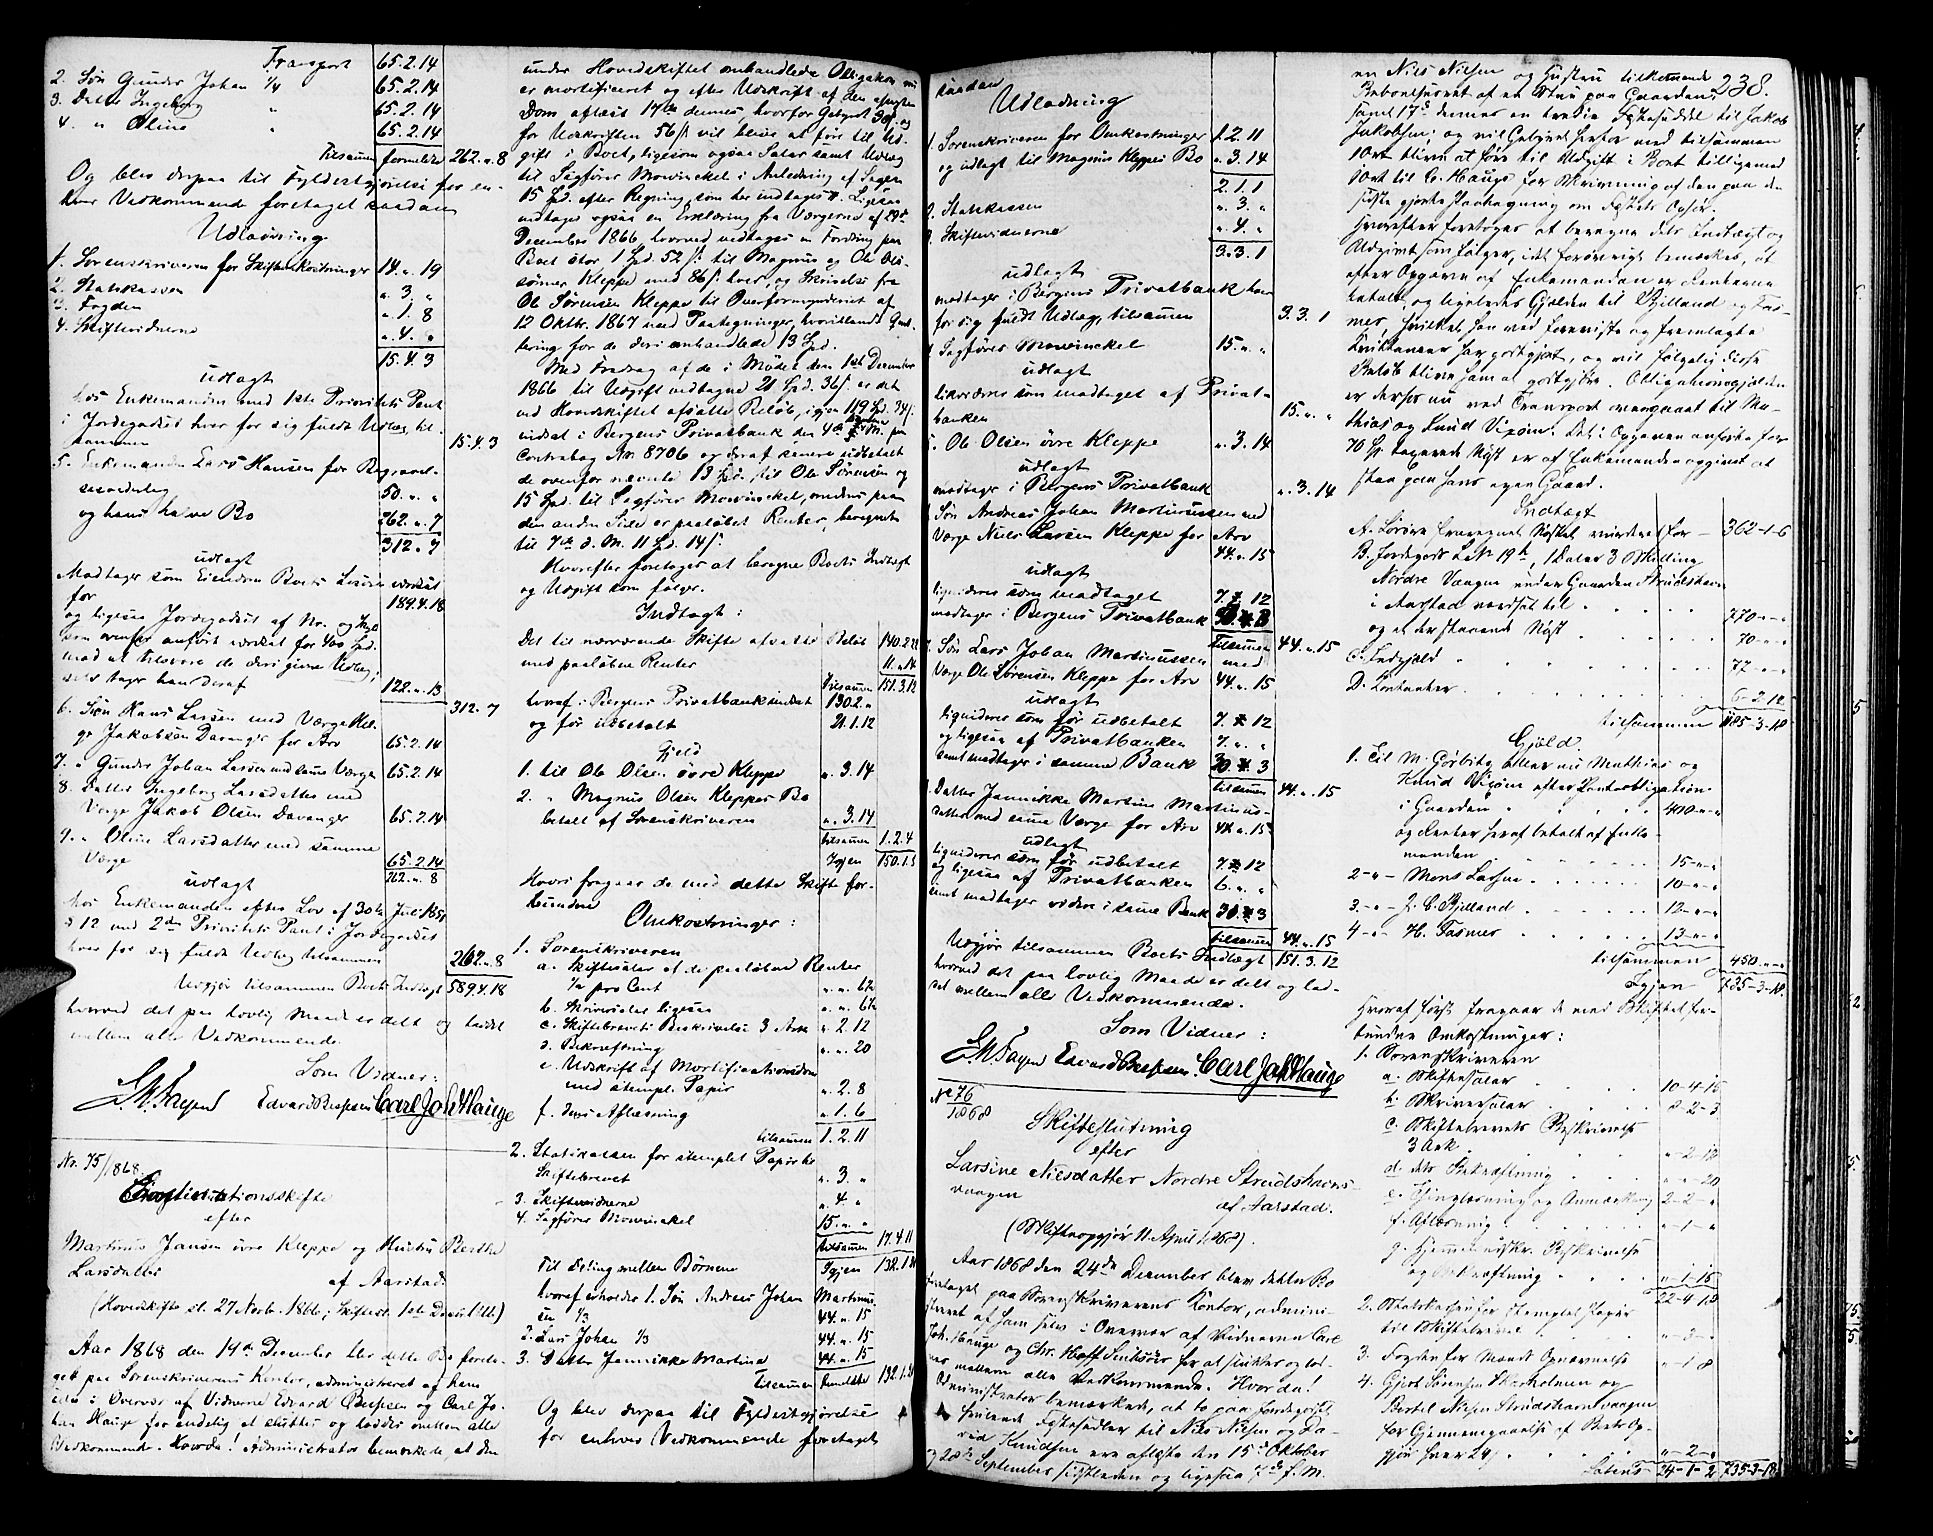 Transport 65. 2. 14
2. Søn Gunder Johan 1/4 65. 2. 14
3. Datter Ingeborg " 65. 2. 14
4. " Oline " 65. 2. 14
Tilsammen formeldte 262. " 8
Og blev derpaa til Fyldestgjørelse for en-
hver Vedkommende foretaget saadan
Udlodning
1. Sorenskriveren for Skifteomkostninger 14. " 19
2. Statskassen ". 3. "
3. Fogden ". 1. 8
4. Skiftevidnerne ". 4. "
15. 4. 3
udlagt
hos Enkemanden med 1ste Prioritets Pant
i Jordegodset hver for sig fuldt Udlæg, til-
sammen 15. 4. 3
5. Enkemanden Lars Hansen for Begravel-
sesomkostning 50. ". "
og hans halve Bo 262. ". 7
312. ". 7
udlagt
Modtager som Eiendom Boets Løsøre værdsat
for 189. 4. 18
og ligesaa Jordegodset af No. og Skyld
som ovenfor anført værdsat for 400 Spd.
mod at tilsvare de deri givne Udlæg;
selv tager han deraf 122. ". 13
312. ". 7
6. Søn Hans Larsen med Værge Hel-
ge Jakobsen Davanger for Arv 65. 2. 14
7. " Gunder Johan Larsen med samme Værge 65. 2. 14
8. Datter Ingeborg Larsdatter med
Værge Jakob Olsen Davanger 65. 2. 14
9. " Oline Larsdatter med samme
Værge 65. 2. 14
262. ". 8
udlagt
hos Enkemanden efter Lov af 30te Juli 1851
§ 12 med 2den Prioritets Pant i Jordegodset
hver for sig fuldt Udlæg tilsammen 262. ". 8
Udgjør tilsammen Boets Indtægt 589. 4. 18
hvorved det paa lovlig Maade er delt og loddet
mellem alle Vedkommende.
Som Vidner:
Edvard Bessesen Carl Joh Hauge
No. 75/1868.
Continuationsskifte
efter
Martinus Jansen øvre Kleppe og Hustru Berthe
Larsdatter
af Aarstad.
(Hovedskifte sl. 27 Novb. 1866; Skiftesl. 1ste Decbr. 1866)
Aar 1868 den 14de December blev dette Bo foreta-
get paa Sorenskriverens Kontor, administreret af ham
selv i Overvær af Vidnerne Edvard Bessesen og Carl Jo-
han Hauge for endelig at sluttes og loddes mellem alle
Vedkommende. Hvorda! Administrator bemærkede, at den
under Hovedskiftet omhandlede Obligation nu
er mortificeret og efter Udskrift af den afsagte
Dom aflæst 17de dennes, hvorfor Gebyret 30 s. og
for Udskriften 56 s. vil blive at føre til Ud-
gift i Boet, ligesom ogsaa Salær samt Udlæg
til Sagfører Mowinckel i Anledning af Sagen
15 Spd. efter Regning, som her indtages #. Ligesaa
indtages ogsaa en Erklæring fra Værgerne af 29de
December 1866, hvorved vedtages en Fordring paa
Boet stor 1 Spd. 52 s. til Magnus og Ole Ols-
sønner Kleppe med 86 s. hver, og Skrivelse fra
Ole Sørensen Kleppe til Overformynderiet af
12 Oktbr. 1867 med Paategninger, hvoriblandt Qvit-
tering for de deri omhandlede 13 Spd.
Med Fradrag af de i Mødet den 1ste December
1866 til Udgift vedtagne 21 Spd. 36 s. er det
ved Hovedskiftet afsatte Beløb, igjen 119 Spd. 74 s.
indsat i Bergens Privatbank den 4de f. M. paa
Contrabog No. 8706 og deraf senere udbetalt
de ovenfor nævnte 13 Spd. til Ole Sørensen og
15 Spd. til Sagfører Mowinckel, medens paa
den anden Side er paaløbet Renter, beregnet
til 7de d. M. 11 Spd. 14 s.
Hvorefter foretoges at beregne Boets Indtægt
og Udgift som følger.
Indtægt:
Det til nærværende Skifte afsatte Beløb 140. 2. 22
med paaløbne Renter 11. ". 14
Tilsammen 151. 3. 12
hvoraf i Bergens Privatbank indsat 130. 2. "
og før udbetalt 21. 1. 12
Gjeld
1. til Ole Olsen øvre Kleppe ". 3. 14
2. " Magnus Olsen Kleppes Bo
betalt af Sorenskriveren ". 3. 14
tilsammen 1. 2. 4
Igjen 150. 1. 8
Hvori fragaar de med dette Skifte for-
bundne
Omkostninger:
1. Sorenskriveren
a. Skiftesalær af de paaløbne Renter
1/2 pro Cent ". ". 6 1/2
b. Skriversalær ligesaa ". ". 6 1/2
c. Skiftebrevets Beskrivelse 3 Ark ". 2. 12
d. Bekræftning ". ". 20
e. Udskrift af Mortificationsdom
med stemplet Papir ". 2. 8
f. dens Aflæsning ". 1. 6
tilsammen 1. 2. 11
2. Statskassen for stemplet Papir til
Skiftebrevet ". 3. "
3. Skiftevidnerne ". 4. "
4. Sagfører Mowinckel 15. ". "
tilsammen 17. 4. 11
Til Deling mellem Børnene Igjen 132. 1. 21
hvoraf erholder 1. Søn Andreas Johan Martinus-
sen 1/3 44. ". 15
2. Lars Johan 1/3 44. ". 15
3. Datter Jannikke Martine 44. ". 15
Tilsammen formeldte 132. 1. 21
Og blev derpaa til Fyldestgjørelse
for enhver Vedkommende foretaget
saadan
Udlodning
1. Sorenskriveren for Omkostninger 1. 2. 11
og udlagt til Magnus Kleppes Bo ". 3. 14
2. 1. 1
2. Statskassen ". 3. "
3. Skiftevidnerne ". 4. "
3. 3. 1
udlagt
modtager i Bergens Privatbank hver
for sig fuldt Udlæg, tilsammen 3. 3. 1
4. Sagfører Mowinckel 15. ". "
udlagt
likvideres som modtaget af Privat-
banken 15. ". "
5. Ole Olsen øvre Kleppe ". 3. 14
udlagt
modtager i Bergens Privatbank ". 3. 14
6. Søn Andreas Johan Martinussen med
Værge Niels Larsen Kleppe for Arv 44. ". 15
udlagt
liqvideres som modtaget 7. ". 12
modtager i Bergens Privatbank
Tilsammen 44. ". 15
7. Søn Lars Johan Martinussen med
Værge Ole Sørensen Kleppe for Arv 44. ". 15
udlagt
liquiderer som før udbetalt 7. ". 12
og ligesaa af Privatbanken 7. ". "
samt modtager i samme Bank 30. ". 3
tilsammen 44. ". 15
8. Datter Jannikke Martine Martinus-
datter med samme Værge for Arv 44. ". 15
udlagt
liquiderer som før udbetalt 7. ". 12
og ligesaa af Privatbanken 6. ". "
samt modtager videre i samme Bank
tilsammen 44. ". 15
Udgjør tilsammen Boets Indtægt 151. 3. 12
hvorved det paa lovlig Maade er delt og lod-
det mellem alle Vedkommende.
Som Vidner:
Edvard Bessesen. Carl Joh Hauge
No 76
1868
Skifteslutning
efter
Larsine Nielsdatter Nordre Strudshavns-
vaagen
af Aarstad.
(Skifteopgjør 11 April 1868).
Aar 1868 den 24de December blev dette Bo
foretaget paa Sorenskriverens Kontor, admini-
streret af ham selv i Overvær af Vidnerne Carl
Joh. Hauge og Chr. Hoff for at sluttes og lod-
des mellem alle Vedkommende. Hvorda!
Administrator bemærkede, at to paa Jordegodset
heftende Fæstesedler til Niels Nielsen og Da-
vid Knudsen ere aflæste den 15de Oktober
og 28de September sidstleden og ligesaa 7de f. M.
238.
en Nils Nielsen og Hustru tilkommende
Beboelsesret af en Stue paa Gaarden,
samt 17de dennes en tredie Fæstesæddel til Jakob
Jakobsen; og vil Gebyret herfor med tilsammen
1 Ort blive at føre til Udgift i Boet tilligemed
1 Ort til C. Hauge for Skrivning af den paa den
sidste gjorte Paategning om Fæstets Ophør.
Hvorefter foretoges at beregne dets Indtægt og
Udgift som følger, idet forøvrigt bemærkes, at
efter Opgave af Enkemanden er Renterne
betalte og ligeledes Gjelden til Kjilland og Fas-
mer, hvilket han ved foreviste og fremlagte
Kvitteringer har godtgjort, og vil følgelig disse
Beløb blive ham at godtgjøre. Obligationsgjelden
er derhos nu ved Transport overgaaet til Ma-
thias og Knud Vixøm. Det i Opgaven anførte for
70 Sp. taxerede Nøst er af Enkemanden opgivet at
staa paa hans egen Gaard.
Indtægt
A. Løsøre fraregnet Nøstet vurderet for 362-1-6
B. Jordegods L. No 19b, 1 Daler 3 Ort Skilling
Nordre Vaagen under Gaarden Strudshavn
i Aarstad værdsat til 770-"-"
og et der staaende Nøst 70-"-"
C. Indgjeld 77-"-"
D. Kontanter 6-2-12
tilsammen 1185-3-18
Gjeld.
1. Til M. Gørbitz eller nu Mathias og
Knud Vixøm efter Pantobligation
i Gaarden 400-"-"
og Renter heraf betalt af Enke-
manden 15-"-"
2-"- Mons Larsen 10-"-"
3-"- J. C. Kjilland 12-"-"
4-"- H. Fasmer 13-"-"
tilsammen 450-"-"
Igjen 735-3-18.
Hvoraf først fragaar de med Skiftet for-
bundne Omkostninger:
1. Sorenskriveren
a. Skiftesalær 10-4-15
b. Skriversalær 8-2-3
c. Skiftebrevets Beskrivelse
3 Ark "-2-12
d. dets Bekræftning "-"-20
e. Thinglæsning og Anmærkning 2-2-"
f. Aflæsning "-1-"
g. Gjenpartskr. Beskrivelse
og Bekræftning "-1-15
22-4-18
2. Statskassen for stemplet Papir
til Skiftebrevet "-3-"
3. Fogden for Mands Opnævnelse "-1-8
4. Gjert Sørensen Skarholmen og
Bertel Nilsen Strudshavnvaagen
for Gjennemgaaelse af Boets Op-
gjør hver 24 s "-2-"
Lateris 24-1-2 735-3-18